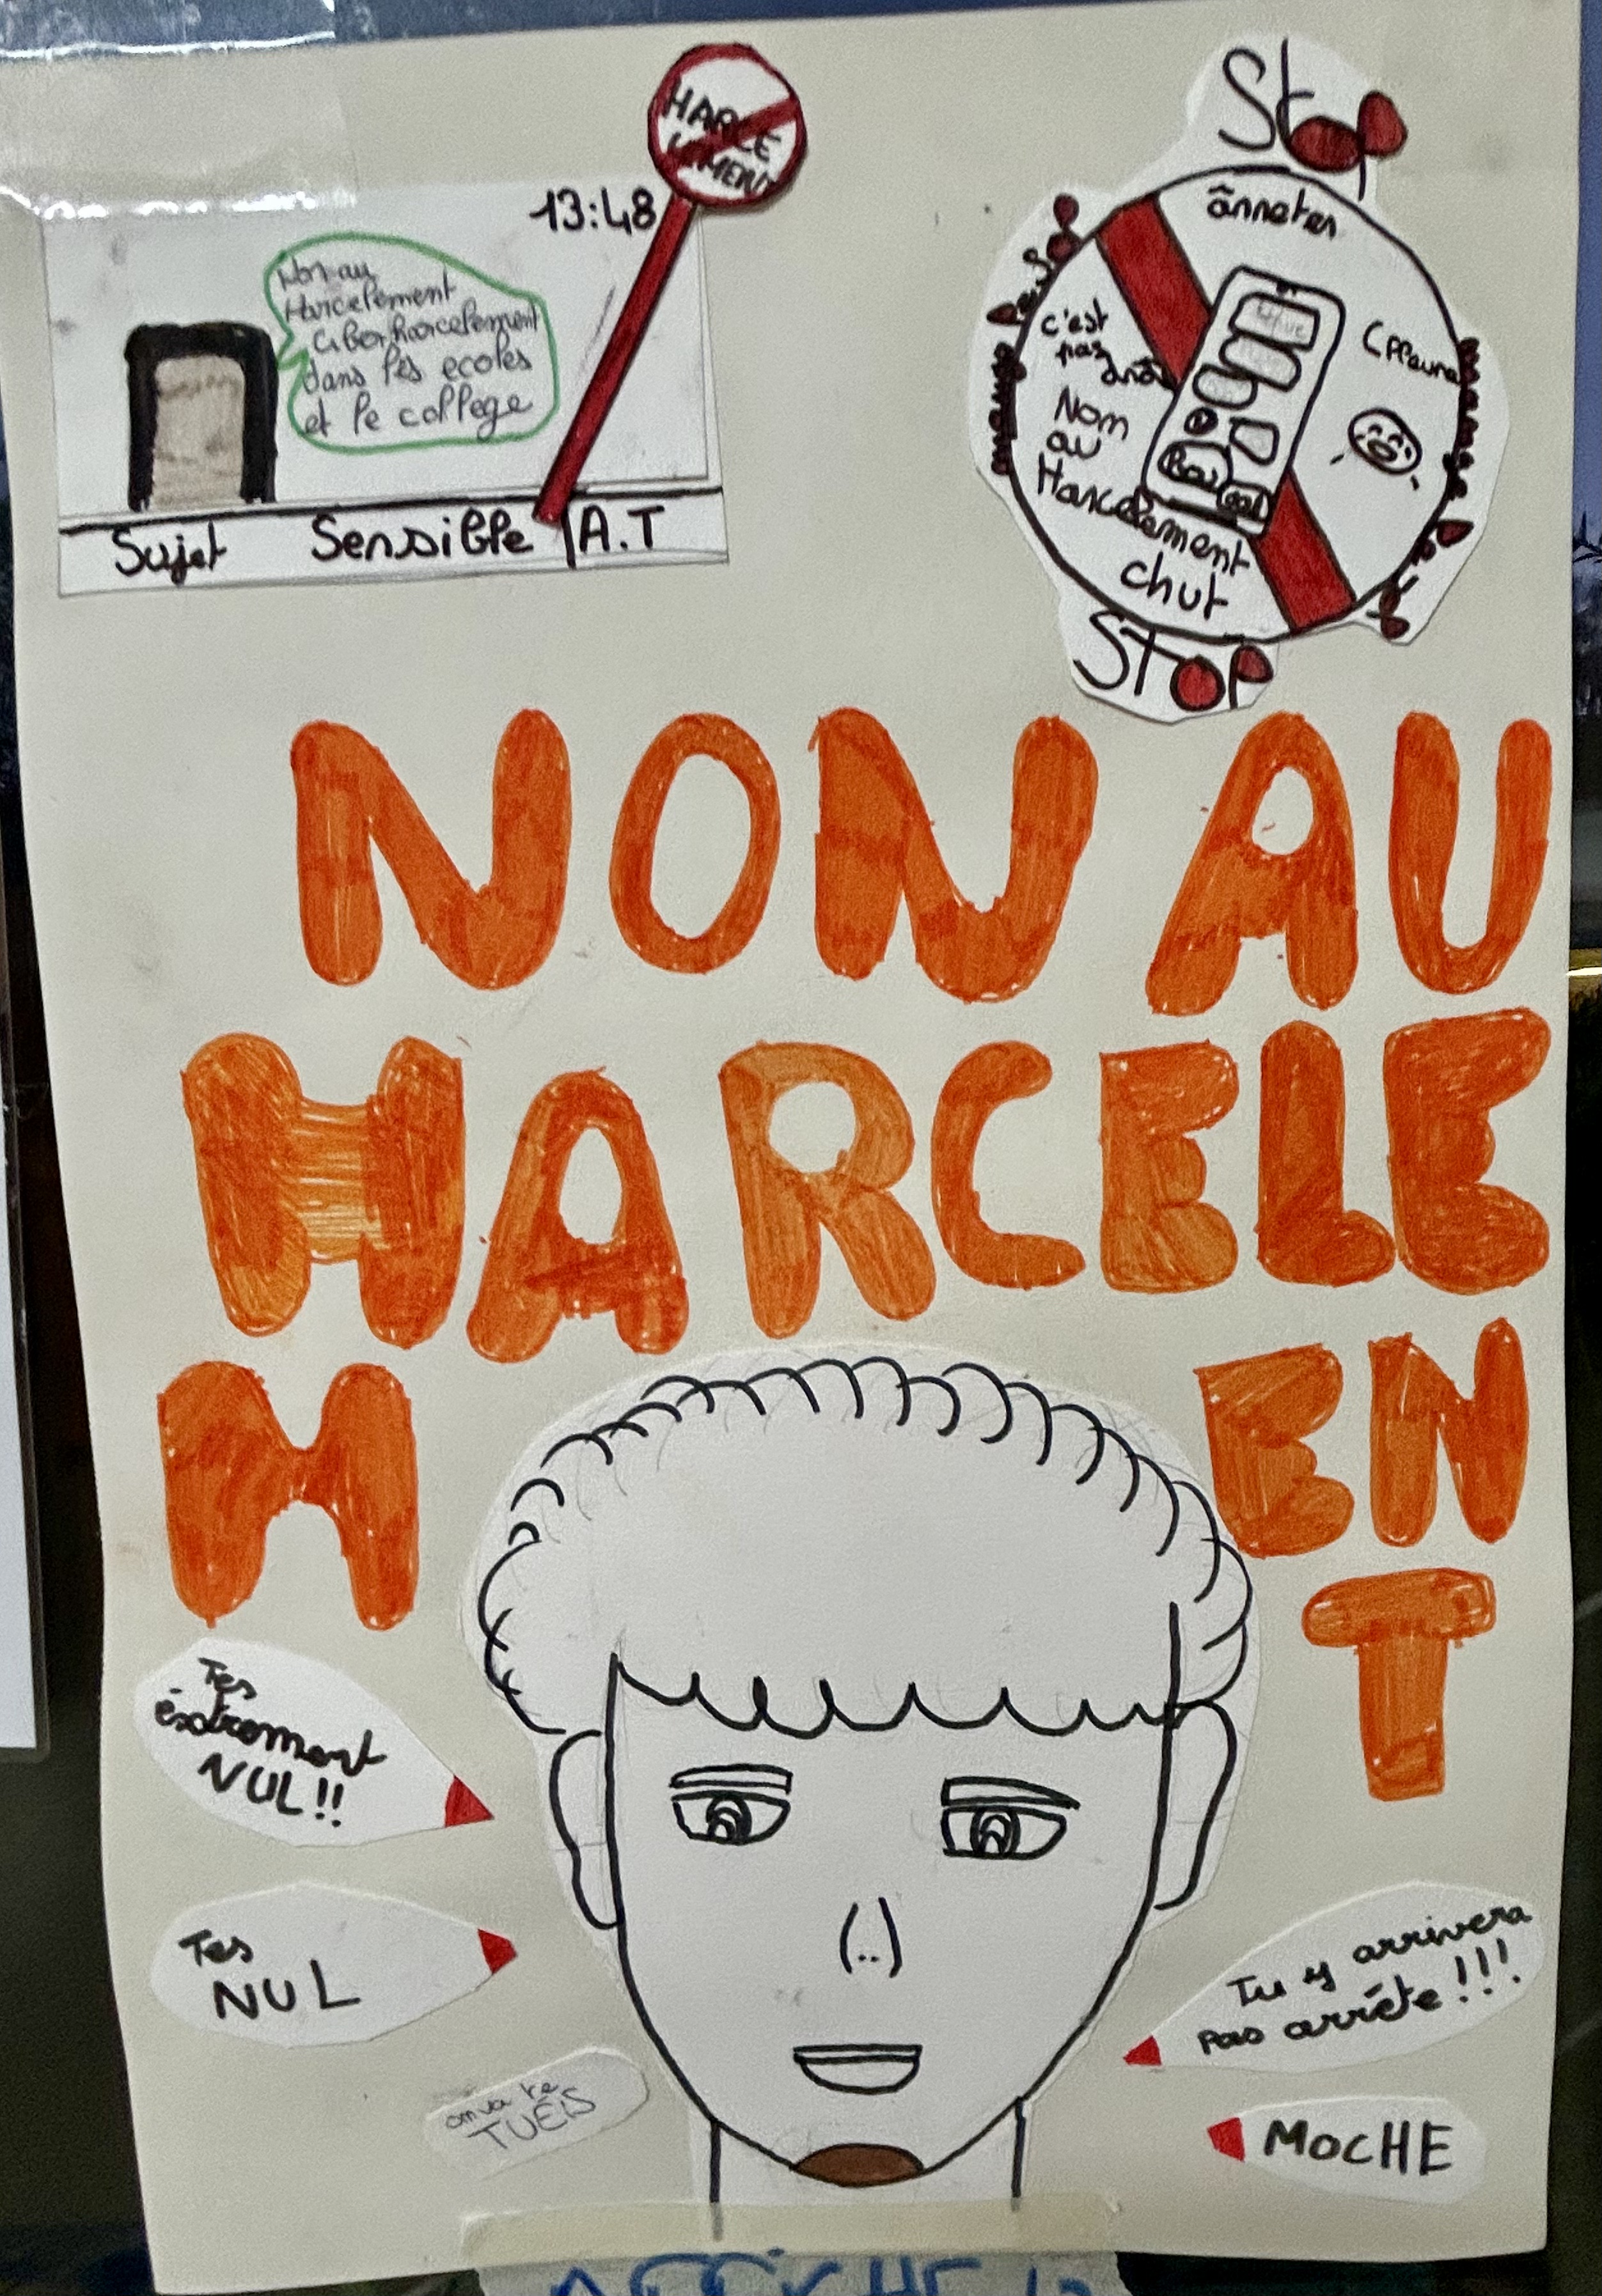 HARCE
LEMENT
13:48
Non au
Harcelement
Ciberharcelement
dans les ecoles
et le collège
Sujet Sensible A.T
Stop
ânnetes
c'est
pas
Nom
au
Harcelement
chut
STOP
NON AU
HARCELE
MENT
Tes
éxtrement
NUL!!
Tes
NUL
on va te
TUÉIS
Tu y arrivera
pas arrête!!!
MOCHE